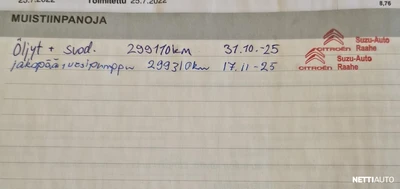 23.7.2022 Toimitettu 25.7.2022 8,76
MUISTIINPANOJA
Öljyt + suod. 299110km 31.10.-25
CITROËN Suzu-Auto Raahe
jakopää+vesipumppu 299310km 17.11-25
CITROËN Suzu-Auto Raahe
NETTIAUTO